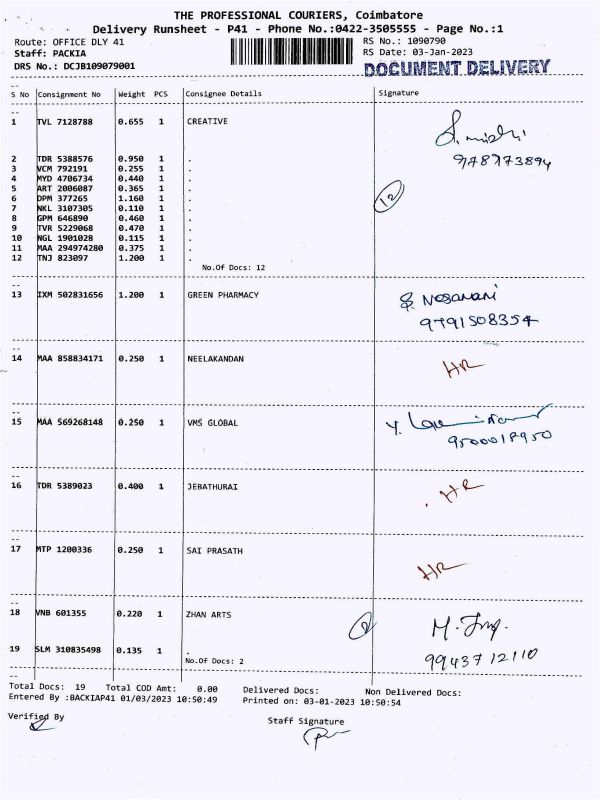 THE PROFESSIONAL COURIERS, Coimbatore
Delivery Runsheet - P41 - Phone No.:0422-3505555 - Page No.:1
Route: OFFICE DLY 41 RS No.: 1090790
Staff: PACKIA RS Date: 03-Jan-2023
DRS No.: DCJB109079001 DOCUMENT DELIVERY
S No Consignment No Weight PCS Consignee Details Signature
1 TVL 7128788 0.655 1 CREATIVE
2 TDR 5388576 0.950 1 .
3 VCM 792191 0.255 1 .
4 MYD 4706734 0.440 1 .
5 ART 2006087 0.365 1 .
6 DPM 377265 1.160 1 .
7 NKL 3107305 0.110 1 .
8 GPM 646890 0.460 1 .
9 TVR 5229068 0.470 1 .
10 NGL 1901028 0.115 1 .
11 MAA 294974280 0.375 1 .
12 TNJ 823097 1.200 1 .
No.Of Docs: 12
12
13 IXM 502831656 1.200 1 GREEN PHARMACY
9791508354
14 MAA 858834171 0.250 1 NEELAKANDAN HR
15 MAA 569268148 0.250 1 VMS GLOBAL
9500018950
16 TDR 5389023 0.400 1 JEBATHURAI HR
17 MTP 1200336 0.250 1 SAI PRASATH HR
18 VNB 601355 0.220 1 ZHAN ARTS
19 SLM 310835498 0.135 1 .
No.Of Docs: 2 9943712110
Total Docs: 19 Total COD Amt: 0.00 Delivered Docs: Non Delivered Docs:
Entered By :BACKIAP41 01/03/2023 10:50:49 Printed on: 03-01-2023 10:50:54
Verified By Staff Signature